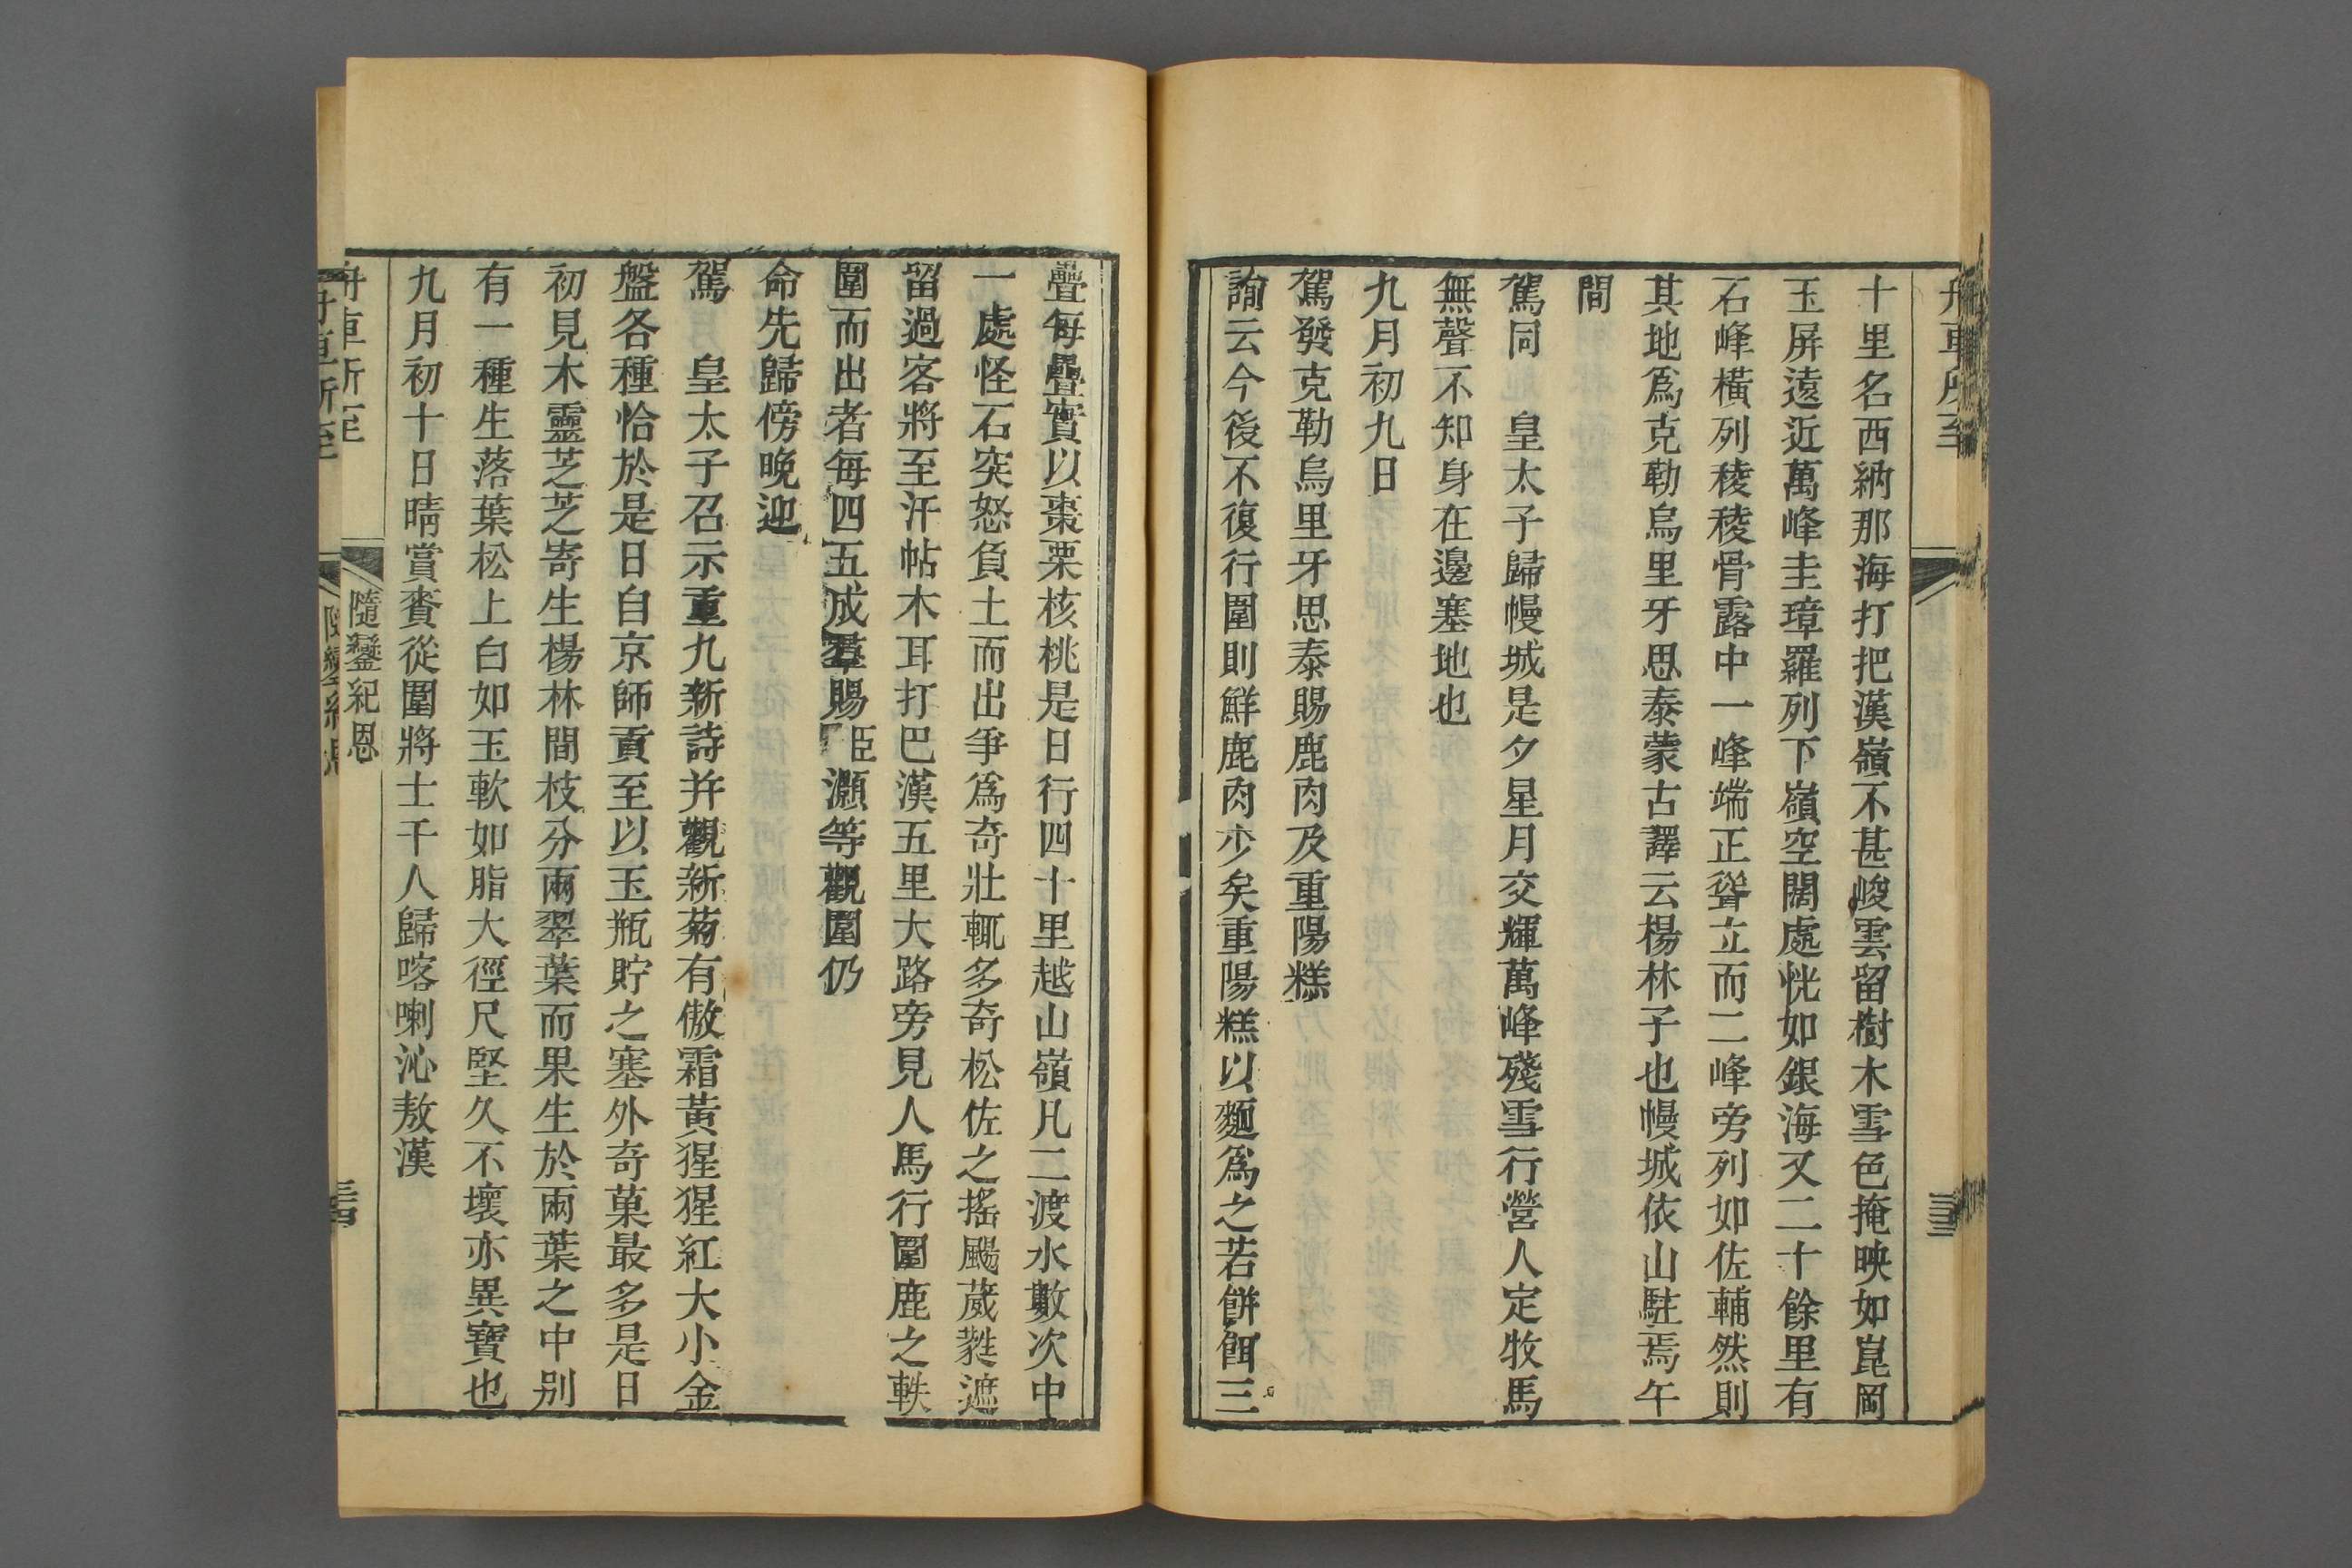 十里名西納那海打把漢嶺不甚峻雲留樹木雪色掩映如崑岡
玉屏遠近萬峰圭璋羅列下嶺空闊處恍如銀海又二十餘里有
石峰橫列稜稜骨露中一峰端正聳立而二峰旁列如佐輔然則
其地爲克勒烏里牙思泰蒙古譯云楊林子也幔城依山駐焉午
間
駕同　皇太子歸幔城是夕星月交輝萬峰殘雪行營人定牧馬
無聲不知身在邊塞地也
九月初九日
駕發克勒烏里牙思泰賜鹿肉及重陽糕
諭云今後不復行圍則鮮鹿肉少矣重陽糕以麵爲之若餅餌三
疊每疊實以棗栗核桃是日行四十里越山嶺凡二渡水數次中
一處怪石突怒負土而出爭爲奇壯輒多奇松佐之搖颺葳蕤遮
留過客將至汗帖木耳打巴漢五里大路旁見人馬行圍鹿之軼
圍而出者每四五成羣賜臣灝等觀圍仍
命先歸傍晚迎
駕　皇太子召示重九新詩并觀新菊有傲霜黃猩猩紅大小金
盤各種恰於是日自京師貢至以玉瓶貯之塞外奇菓最多是日
初見木靈芝芝寄生楊林間枝分兩翠葉而果生於兩葉之中別
有一種生落葉松上白如玉軟如脂大徑尺堅久不壞亦異寶也
九月初十日晴賞賚從圍將士千人歸喀喇沁敖漢
舟車所至
隨鑾紀恩